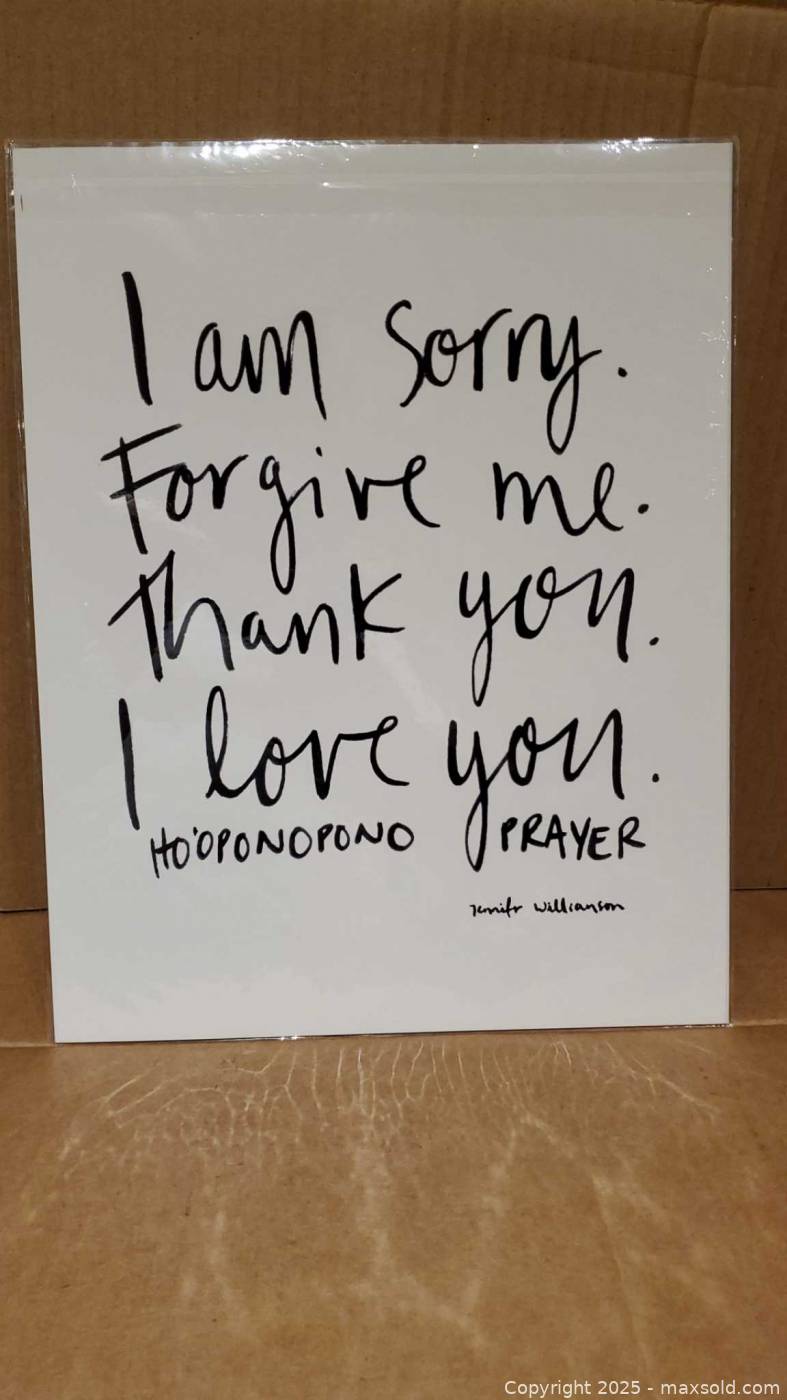 I am sorry.
Forgive me.
Thank you.
I love you.
HO'OPONOPONO PRAYER
Jennifr Williamson
Copyright 2025 - maxsold.com